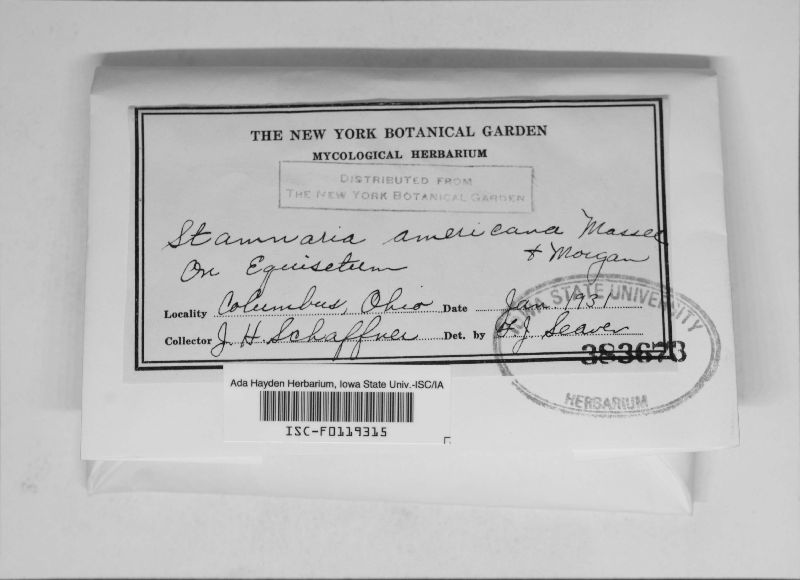 THE NEW YORK BOTANICAL GARDEN
MYCOLOGICAL HERBARIUM
DISTRIBUTED FROM
THE NEW YORK BOTANICAL GARDEN
Stamnaria americana Massee
& Morgan
On Equisetum
Locality Columbus, Ohio Date Jan. 1931
Collector J. H. Schaffner Det. by F. J. Seaver
STATE UNIVERSITY
383673
HERBARIUM
Ada Hayden Herbarium, Iowa State Univ.-ISC/IA
ISC-F0119315